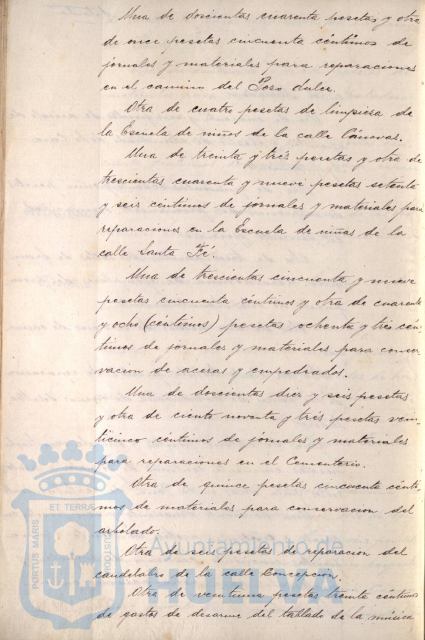 Una de doscientas cuarenta pesetas y otra
de once pesetas cincuenta céntimos de
jornales y materiales para reparaciones
en el camino del Poso dulce.
Otra de cuatro pesetas de limpiesa de
la Escuela de niños de la calle Cánovas.
Una de treinta y tres pesetas y otra de
trescientas cuarenta y nueve pesetas setenta
y seis céntimos de jornales y materiales para
reparaciones en la Escuela de niñas de la
calle Santa Fé.
Una de trescientas cincuenta y nueve
pesetas cincuenta céntimos y otra de cuarenta
y ocho (céntimos) pesetas ochenta y tres cén-
timos de jornales y materiales para conser-
vacion de aceras y empedrados.
Una de doscientas diez y seis pesetas
y otra de ciento noventa y tres pesetas vein-
ticinco céntimos de jornales y materiales
para reparaciones en el Cementerio.
Otra de quince pesetas cincuenta cénti-
mos de materiales para conservacion del
arbolado.
Otra de seis pesetas de reparacion del
candelabro de la calle Concepcion.
Otra de veintiuna pesetas treinta céntimos
de gastos de desarme del tablado de la música
PORTUS MARIS ET TERRAE CUSTODIA
Ayuntamiento de
HUELVA